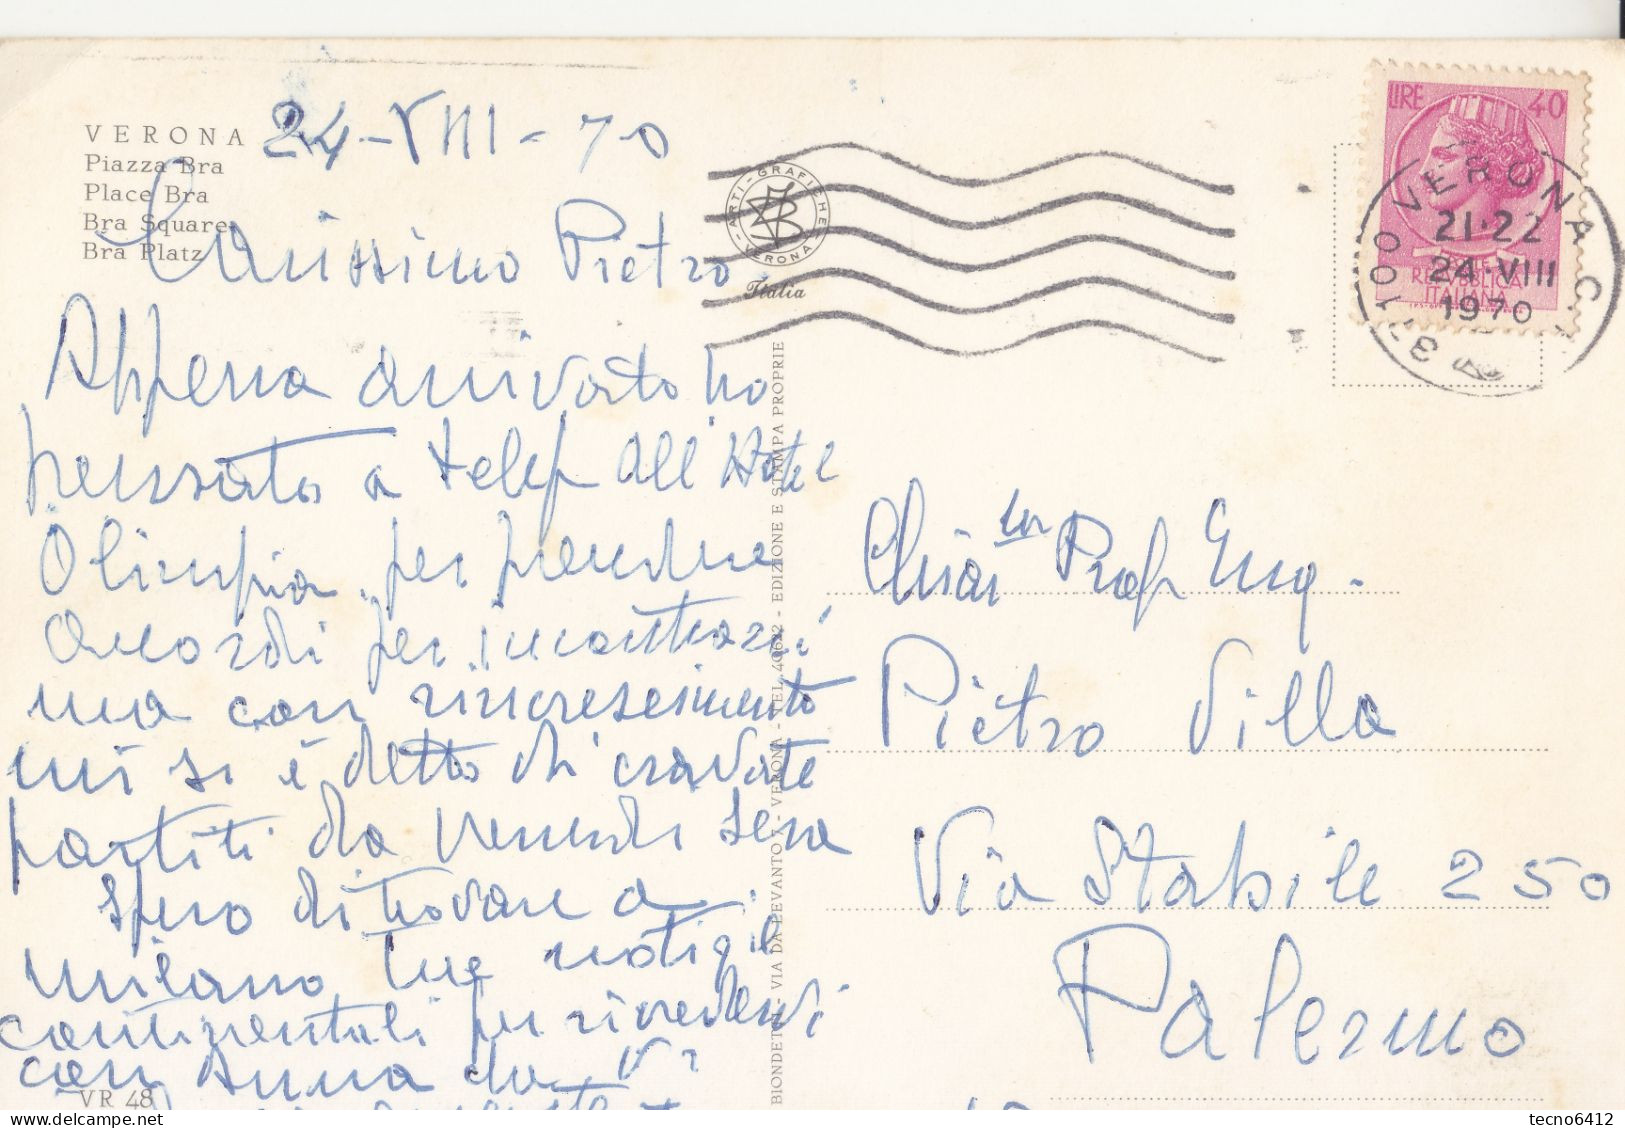 VERONA
Piazza Bra
Place Bra
Bra Square
Bra Platz
24-VIII-70
Carissimo Pietro
Appena arrivato ho
pensato a telef all'Hotel
Olimpia per prendere
accordi per incontrarci
ma con rincrescimento
mi si è detto di
partiti da Venerdì sera
Spero di trovare a
Milano tue notizie
continentali per rivedervi
con Anna da
VR 48
ARTI-GRAFICHE - VERONA
Italia
BIONDETTI - VIA DA LEVANTO 7 - VERONA - TEL. 40642 - EDIZIONE E STAMPA PROPRIE
LIRE 40
REPVBBLICA
ITALIANA
VERONA C.
21·22
24·VIII
1970
37100
Chiar Prof Ing.
Pietro Villa
Via Stabile 250
Palermo
tecno6412